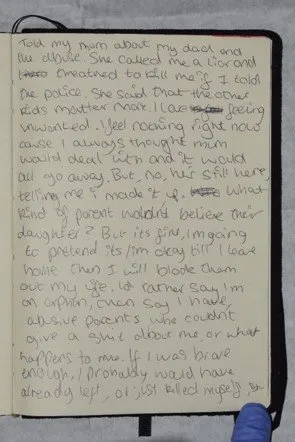 Told my mum about my dad and
the abuse. She called me a liar and
threatned to kill me if I told
the police. She said that the other
kids matter more. I feeling
unwanted. I feel nothing right now
cause I always thought mum
would deal with and it would
all go away. But, no, he's still here,
telling me i made it up. what
kind of parent wouldn't believe their
daughter? But its fine, im going
to pretend its/im okay till I leave
home then I will block them
out my life. Id rather say I'm
an orphan, than say I have,
abusive parents who couldn't
give a shit about me, or what
happens to me. If I was brave
enough, I probably would have
already left, or just killed myself,